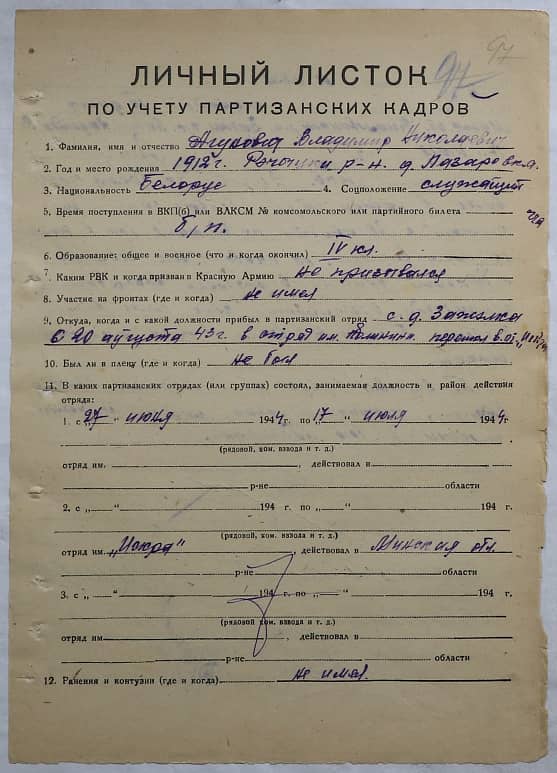 97 97
ЛИЧНЫЙ ЛИСТОК
ПО УЧЕТУ ПАРТИЗАНСКИХ КАДРОВ
1. Фамилия, имя и отчество Владимир Николаевич
2. Год и место рождения 1912 г. р-н. д.
3. Национальность Белорус 4. Соцположение служащий
5. Время поступления в ВКП(б) или ВЛКСМ № комсомольского или партийного билета
б/п.
6. Образование: общее и военное (что и когда окончил) IV кл.
7. Каким РВК и когда призван в Красную Армию не призывался
8. Участие на фронтах (где и когда) не имел
9. Откуда, когда и с какой должности прибыл в партизанский отряд с. д.
С 20 августа 43 г. в отряд им. Калинина.
10. Был ли в плену (где и когда) не был
11. В каких партизанских отрядах (или группах) состоял, занимаемая должность и район действия
отряда:
1. с „27“ июня 1944 г. по „17“ июля 1944 г
(рядовой, ком. взвода и т. д.)
отряд им. , действовал в
р-не области
2. с „ “ 194 г. по „ “ 194 г.
(рядовой, ком. взвода и т. д.)
отряд им. „Искра“ , действовал в Минская обл.
р-не области
3. с „ “ 194 г. по „ “ 194 г.
(рядовой, ком. взвода и т. д.)
отряд им. , действовал в
р-не области
12. Ранения и контузии (где и когда) не имел.